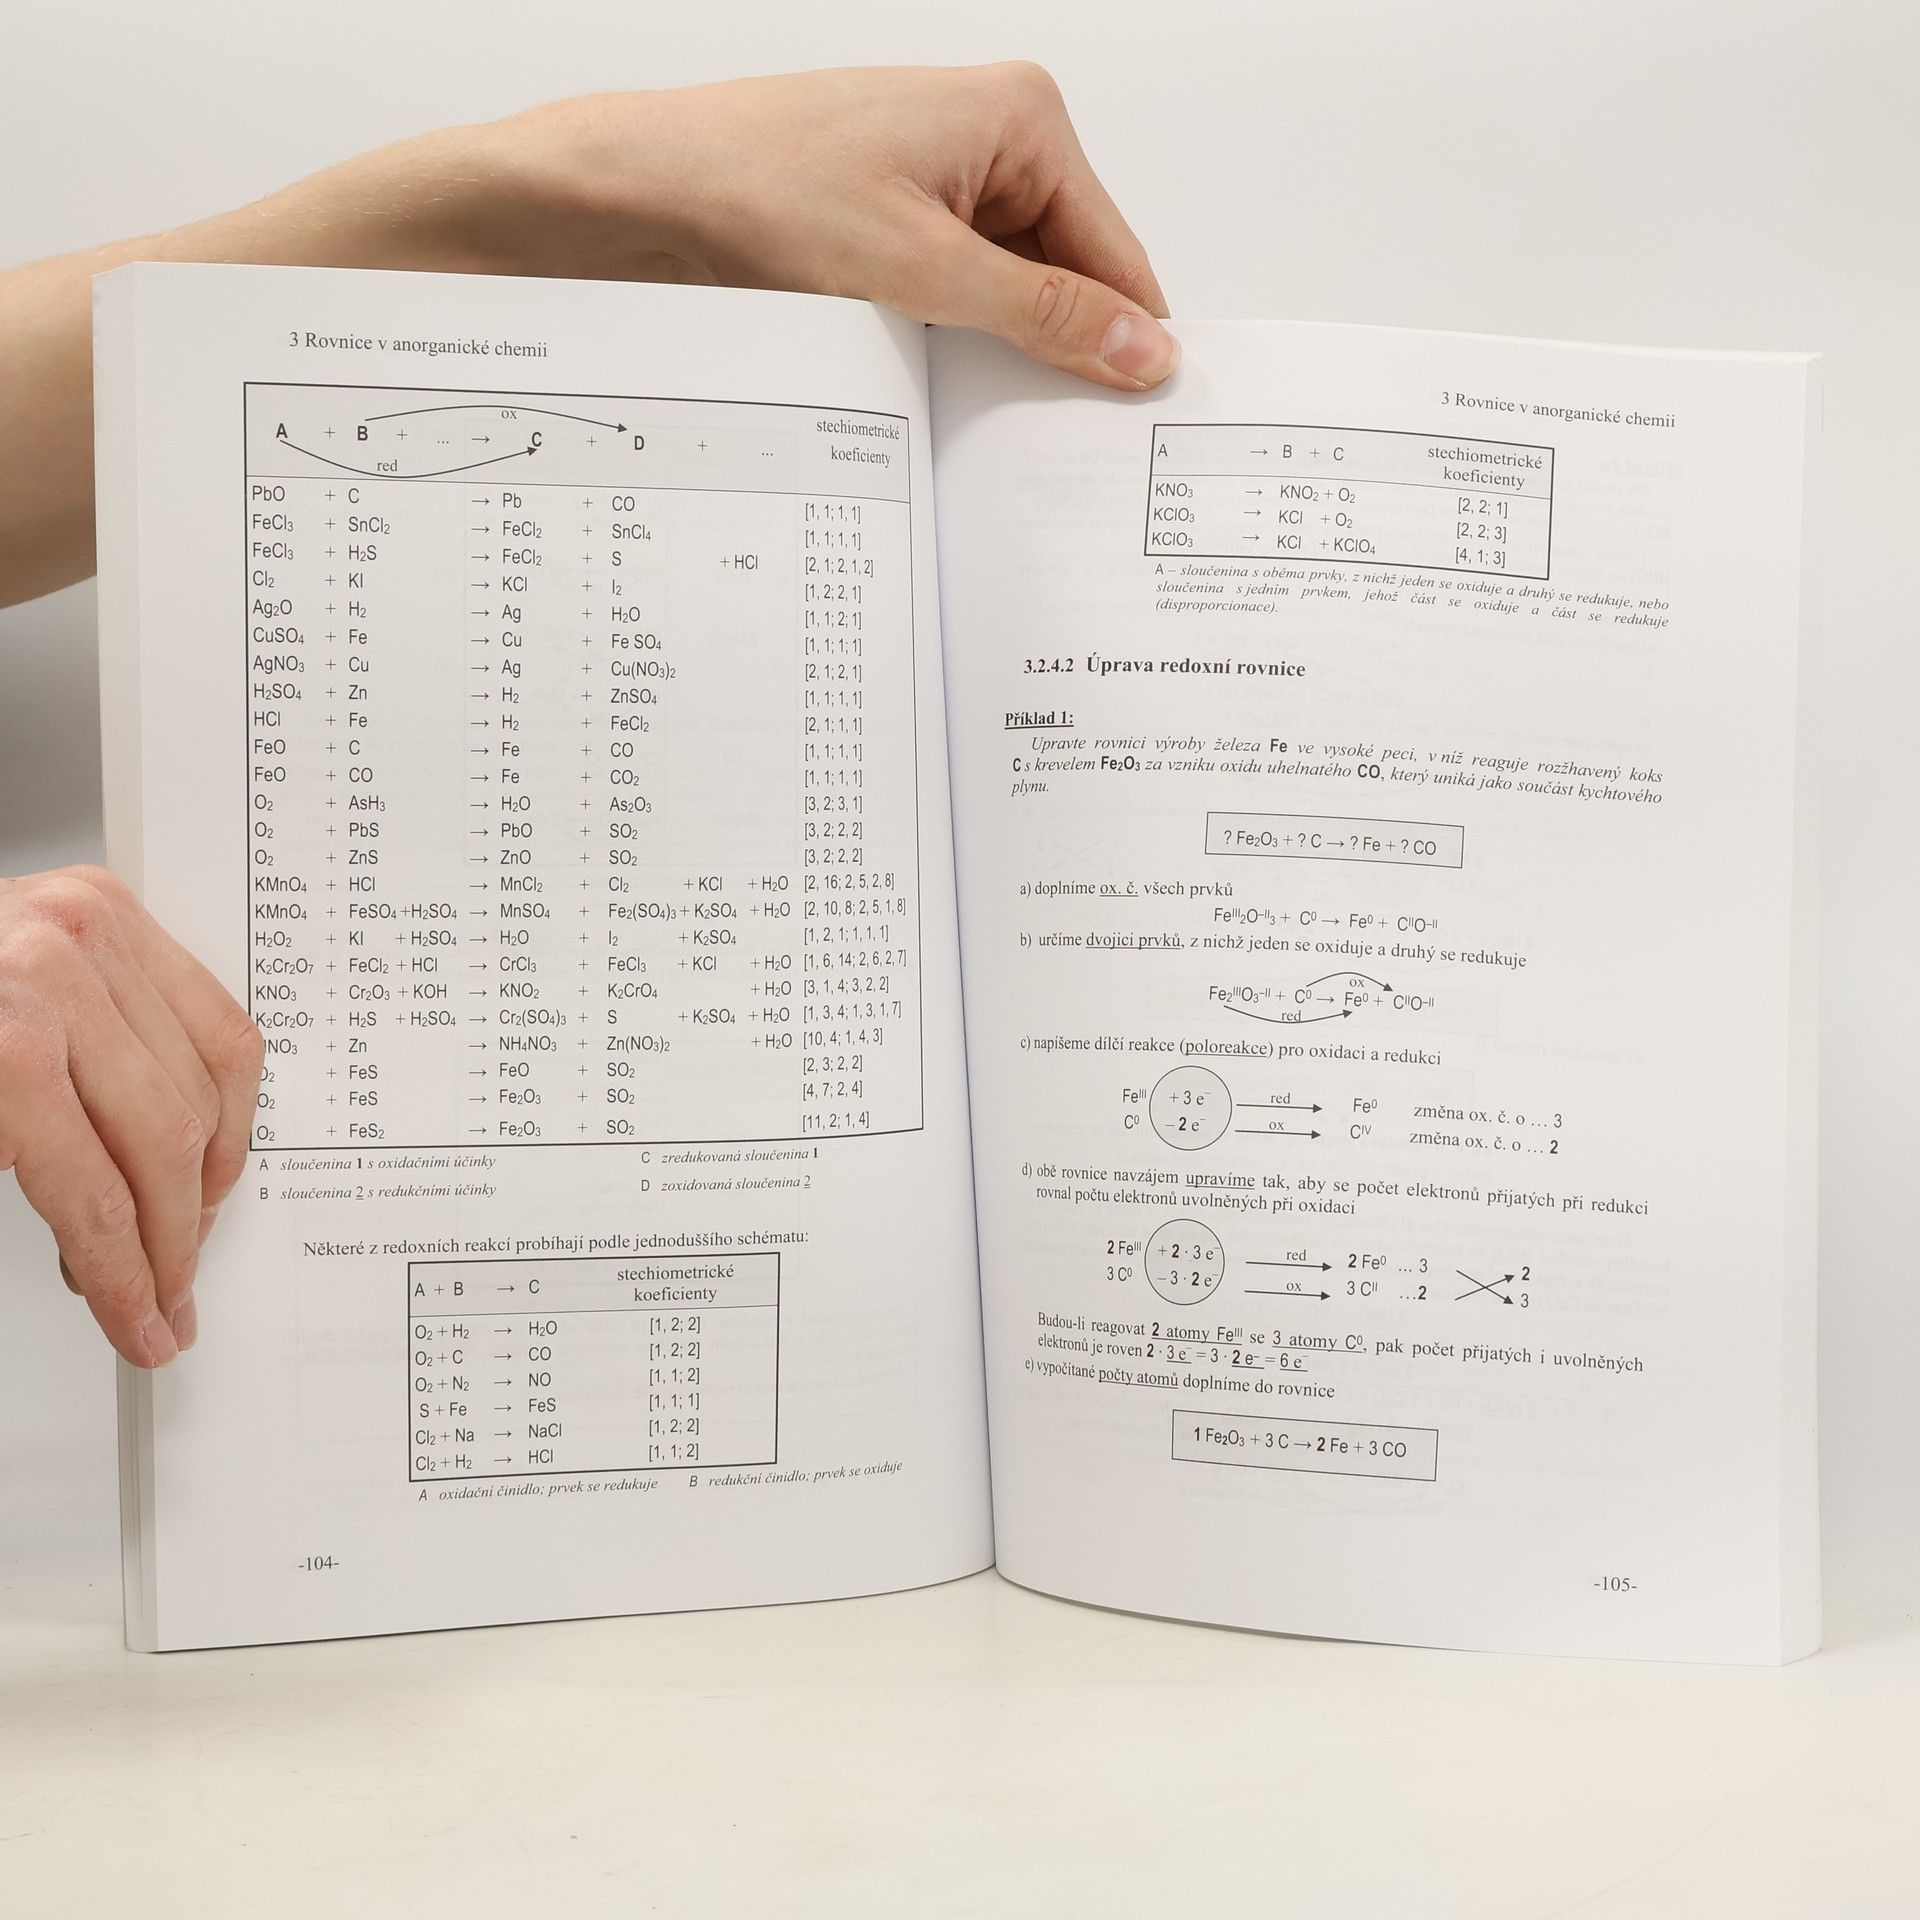 3 Rovnice v anorganické chemii
ox
A + B + ... → C + D + ... stechiometrické koeficienty
red
PbO + C → Pb + CO [1, 1; 1, 1]
FeCl₃ + SnCl₂ → FeCl₂ + SnCl₄ [1, 1; 1, 1]
FeCl₃ + H₂S → FeCl₂ + S + HCl [2, 1; 2, 1, 2]
Cl₂ + KI → KCl + I₂ [1, 2; 2, 1]
Ag₂O + H₂ → Ag + H₂O [1, 1; 2, 1]
CuSO₄ + Fe → Cu + Fe SO₄ [1, 1; 1, 1]
AgNO₃ + Cu → Ag + Cu(NO₃)₂ [2, 1; 2, 1]
H₂SO₄ + Zn → H₂ + ZnSO₄ [1, 1; 1, 1]
HCl + Fe → H₂ + FeCl₂ [2, 1; 1, 1]
FeO + C → Fe + CO [1, 1; 1, 1]
FeO + CO → Fe + CO₂ [1, 1; 1, 1]
O₂ + AsH₃ → H₂O + As₂O₃ [3, 2; 3, 1]
O₂ + PbS → PbO + SO₂ [3, 2; 2, 2]
O₂ + ZnS → ZnO + SO₂ [3, 2; 2, 2]
KMnO₄ + HCl → MnCl₂ + Cl₂ + KCl + H₂O [2, 16; 2, 5, 2, 8]
KMnO₄ + FeSO₄ +H₂SO₄ → MnSO₄ + Fe₂(SO₄)₃ + K₂SO₄ + H₂O [2, 10, 8; 2, 5, 1, 8]
H₂O₂ + KI + H₂SO₄ → H₂O + I₂ + K₂SO₄ [1, 2, 1; 1, 1, 1]
K₂Cr₂O₇ + FeCl₂ + HCl → CrCl₃ + FeCl₃ + KCl + H₂O [1, 6, 14; 2, 6, 2, 7]
KNO₃ + Cr₂O₃ + KOH → KNO₂ + K₂CrO₄ + H₂O [3, 1, 4; 3, 2, 2]
K₂Cr₂O₇ + H₂S + H₂SO₄ → Cr₂(SO₄)₃ + S + K₂SO₄ + H₂O [1, 3, 4; 1, 3, 1, 7]
NO₃ + Zn → NH₄NO₃ + Zn(NO₃)₂ + H₂O [10, 4; 1, 4, 3]
O₂ + FeS → FeO + SO₂ [2, 3; 2, 2]
O₂ + FeS → Fe₂O₃ + SO₂ [4, 7; 2, 4]
O₂ + FeS₂ → Fe₂O₃ + SO₂ [11, 2; 1, 4]
A sloučenina 1 s oxidačními účinky C zredukovaná sloučenina 1
B sloučenina 2 s redukčními účinky D zoxidovaná sloučenina 2
Některé z redoxních reakcí probíhají podle jednoduššího schématu:
A + B → C stechiometrické koeficienty
O₂ + H₂ → H₂O [1, 2; 2]
O₂ + C → CO [1, 2; 2]
O₂ + N₂ → NO [1, 1; 2]
S + Fe → FeS [1, 1; 1]
Cl₂ + Na → NaCl [1, 2; 2]
Cl₂ + H₂ → HCl [1, 1; 2]
A oxidační činidlo; prvek se redukuje B redukční činidlo; prvek se oxiduje
-104-
3 Rovnice v anorganické chemii
A → B + C stechiometrické koeficienty
KNO₃ → KNO₂ + O₂ [2, 2; 1]
KClO₃ → KCl + O₂ [2, 2; 3]
KClO₃ → KCl + KClO₄ [4, 1; 3]
A – sloučenina s oběma prvky, z nichž jeden se oxiduje a druhý se redukuje, nebo
sloučenina s jedním prvkem, jehož část se oxiduje a část se redukuje
(disproporcionace).
3.2.4.2 Úprava redoxní rovnice
Příklad 1:
Upravte rovnici výroby železa Fe ve vysoké peci, v níž reaguje rozžhavený koks
C s krevelem Fe₂O₃ za vzniku oxidu uhelnatého CO, který uniká jako součást kychtového
plynu.
? Fe₂O₃ + ? C → ? Fe + ? CO
a) doplníme ox. č. všech prvků
Feᴵᴵᴵ₂O⁻ᴵᴵ₃ + C⁰ → Fe⁰ + CᴵᴵO⁻ᴵᴵ
b) určíme dvojici prvků, z nichž jeden se oxiduje a druhý se redukuje
ox
Fe₂ᴵᴵᴵO₃⁻ᴵᴵ + C⁰ → Fe⁰ + CᴵᴵO⁻ᴵᴵ
red
c) napíšeme dílčí reakce (poloreakce) pro oxidaci a redukci
Feᴵᴵᴵ + 3 e⁻ red Fe⁰ změna ox. č. o ... 3
C⁰ – 2 e⁻ ox Cᴵⱽ změna ox. č. o ... 2
d) obě rovnice navzájem upravíme tak, aby se počet elektronů přijatých při redukci
rovnal počtu elektronů uvolněných při oxidaci
2 Feᴵᴵᴵ + 2 · 3 e⁻ red 2 Fe⁰ ... 3 2
3 C⁰ – 3 · 2 e⁻ ox 3 Cᴵᴵ ...2 3
Budou-li reagovat 2 atomy Feᴵᴵᴵ se 3 atomy C⁰, pak počet přijatých i uvolněných
elektronů je roven 2 · 3 e⁻ = 3 · 2 e⁻ = 6 e⁻
e) vypočítané počty atomů doplníme do rovnice
1 Fe₂O₃ + 3 C → 2 Fe + 3 CO
-105-